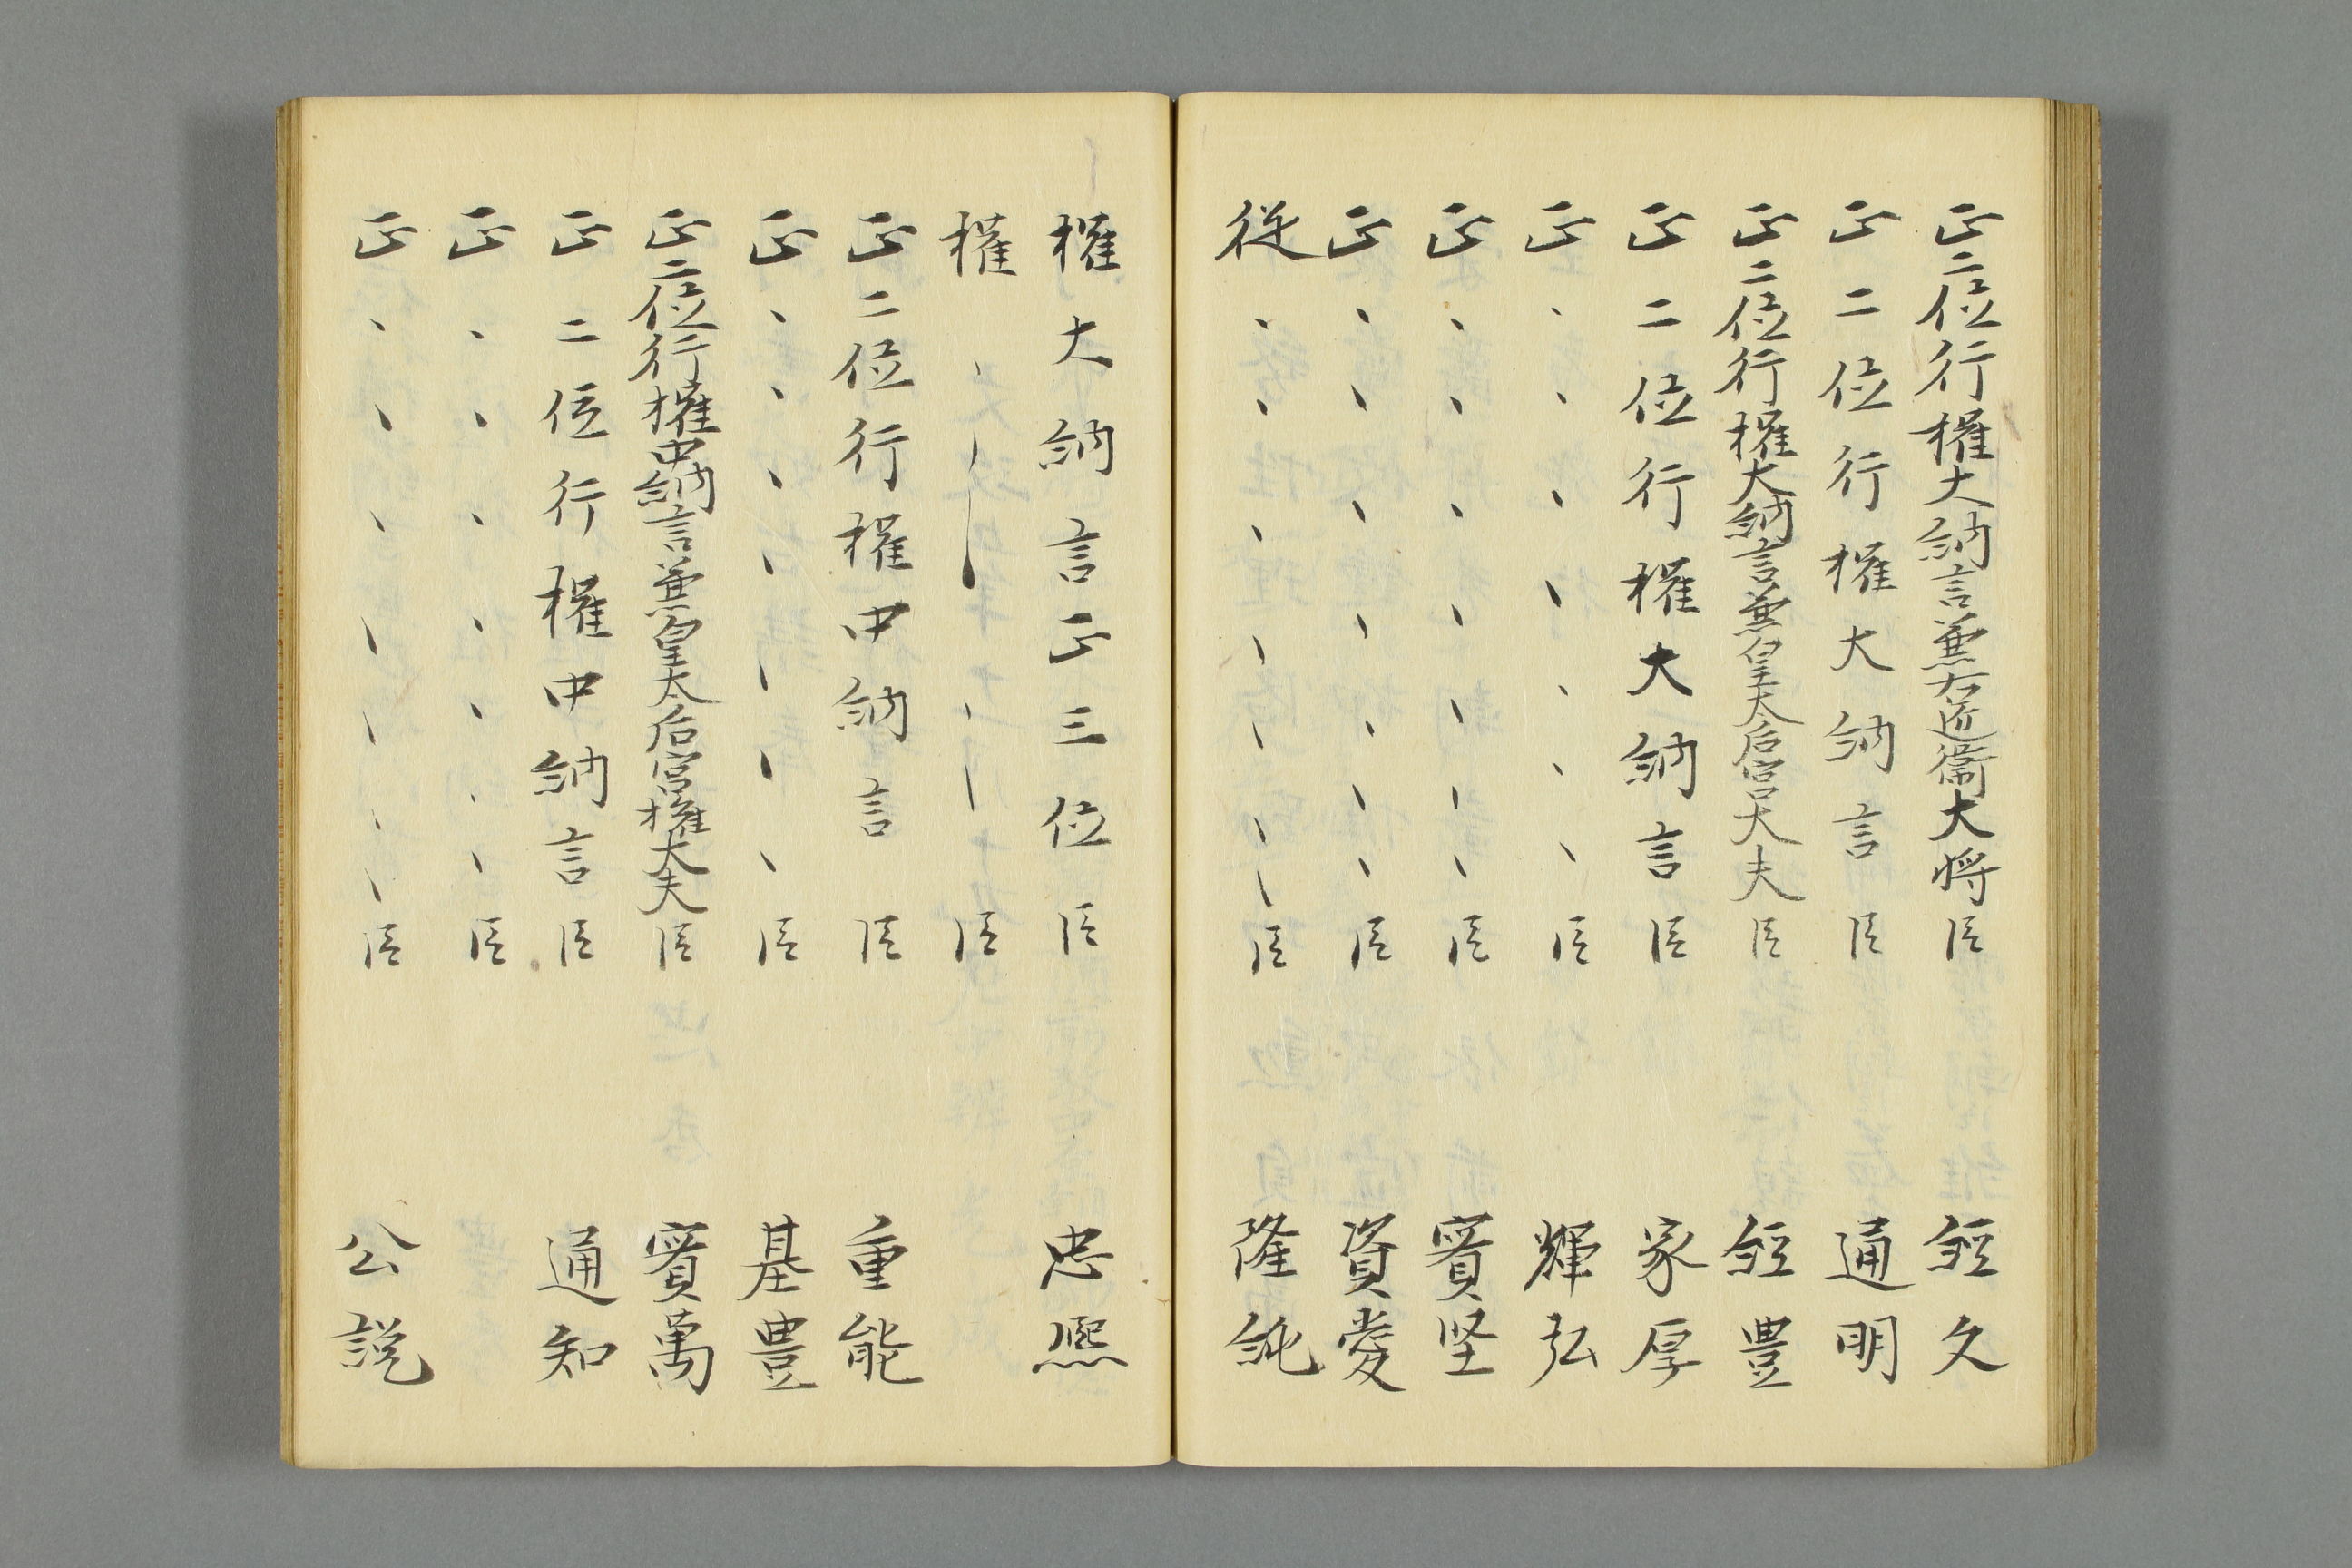 正二位行権大納言兼右近衛大将臣 経久
正二位行権大納言臣 通明
正二位行権大納言兼皇太后宮大夫臣 経豊
正二位行権大納言臣 家厚
正、、、、、、臣 輝弘
正、、、、、、臣 實堅
正、、、、、、臣 資愛
従、、、、、、、臣 隆純
権大納言正三位臣 忠熈
権、、、、臣
正二位行権中納言臣 重能
正、、、、、、、臣 基豊
正二位行権中納言兼皇太后宮権大夫臣 實萬
正二位行権中納言臣 通知
正、、、、、、、臣
正、、、、、、、臣 公説